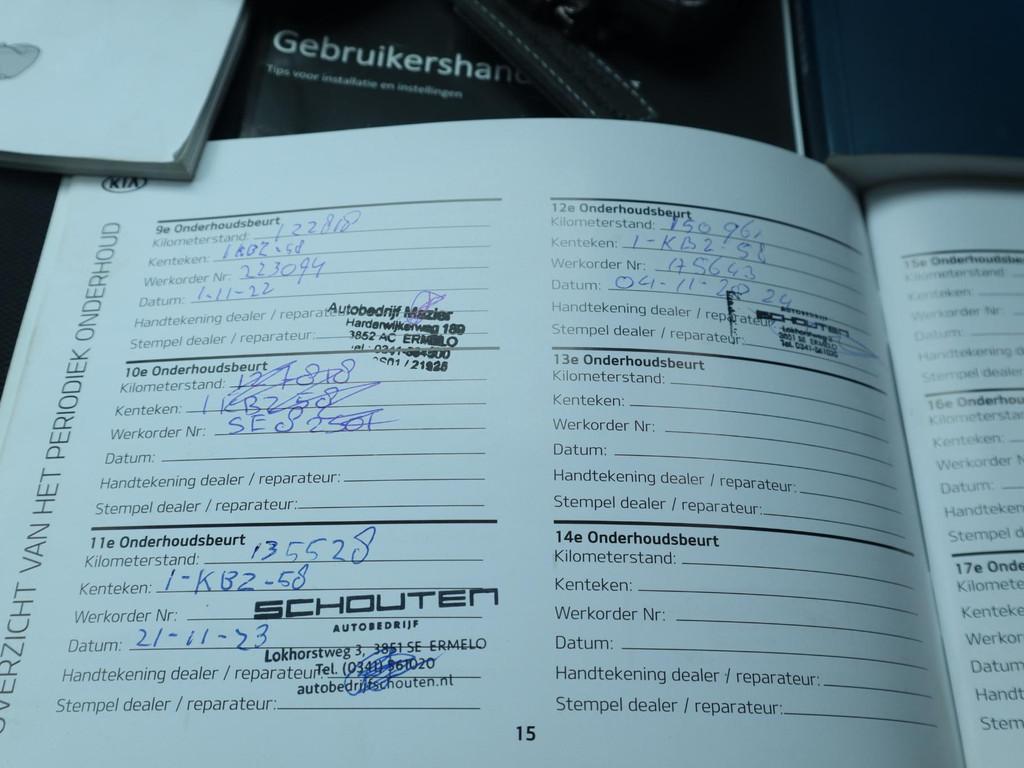 Gebruikershan
Tips voor installatie en instellingen
KIA
OVERZICHT VAN HET PERIODIEK ONDERHOUD
9e Onderhoudsbeurt
Kilometerstand: 122818
Kenteken: 1KBZ-58
Werkorder Nr: 223094
Datum: 1-11-22
Handtekening dealer / repara
Stempel dealer / reparateur:
Autobedrijf Mazier
Harderwijkerweg 189
3852 AC ERMELO
10e Onderhoudsbeurt
Kilometerstand:
Kenteken: 1KBZ-58
Werkorder Nr:
Datum:
Handtekening dealer / reparateur:
Stempel dealer / reparateur:
11e Onderhoudsbeurt
Kilometerstand: 135528
Kenteken: 1-KBZ-58
Werkorder Nr:
Datum: 21-11-23
Handtekening dealer / reparateur
Stempel dealer / reparateur:
SCHOUTEN
AUTOBEDRIJF
Lokhorstweg 3, 3851 SE ERMELO
Tel. (0341) 561020
autobedrijfschouten.nl
12e Onderhoudsbeurt
Kilometerstand:
Kenteken: 1-KBZ-58
Werkorder Nr: 175643
Datum: 04-11-2024
Handtekening dealer / reparateur
Stempel dealer / reparateur:
AUTOBEDRIJF
SCHOUTEN
3851 SE ERMELO
Tel. 0341-561020
13e Onderhoudsbeurt
Kilometerstand:
Kenteken:
Werkorder Nr:
Datum:
Handtekening dealer / reparateur:
Stempel dealer / reparateur:
14e Onderhoudsbeurt
Kilometerstand:
Kenteken:
Werkorder Nr:
Datum:
Handtekening dealer / reparateur:
Stempel dealer / reparateur:
15
15e Onderhoudsbeurt
Kilometerstand
Kenteken:
Werkorder Nr:
Datum:
Handtekening
Stempel dealer
16e Onderhou
Kilometersta
Kenteken:
Werkorder N
Datum:
Handteken
Stempel d
17e Onde
Kilomete
Kenteke
Werkor
Datum
Handt
Stem